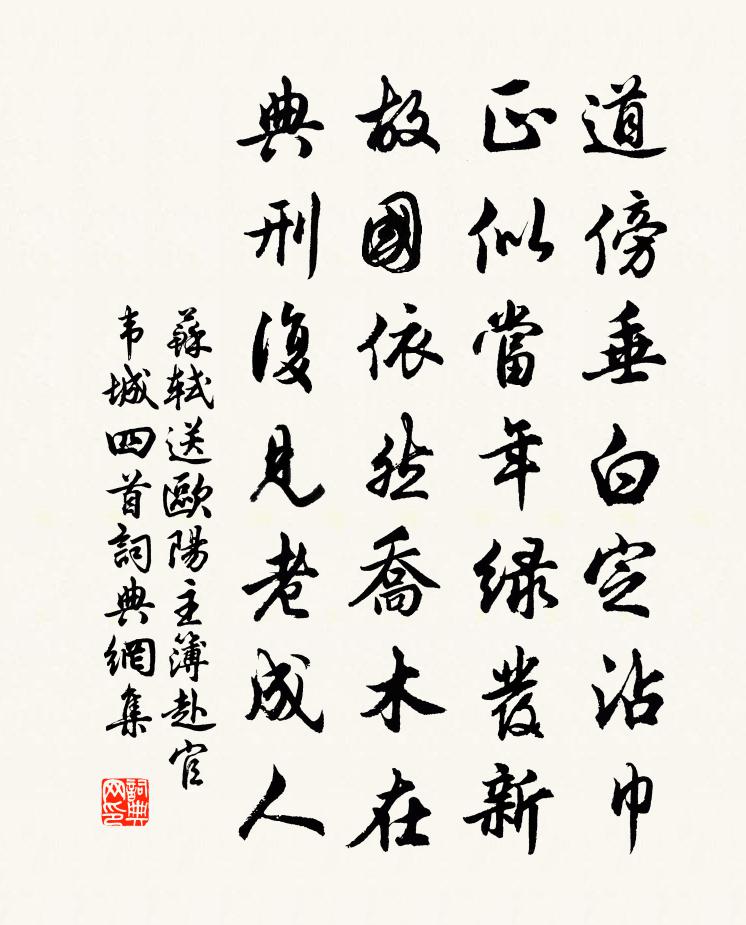 道傍垂白定沾巾
正似當年緑發新
故國依然喬木在
典刑復見老成人
蘇軾送歐陽主簿赴官
韦城四首詞典網集
詞典网印